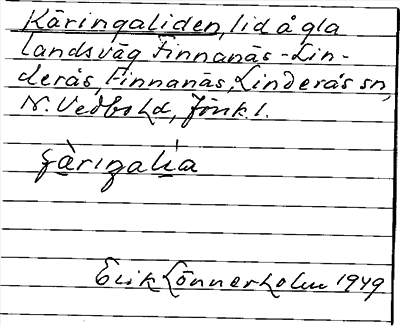 Käringaliden, lid å gla
landsväg Finnanäs-Lin-
derås, Finnanäs, Linderås sn,
N. Vedbo hd, Jönk. l.
Erik Lönnerholm 1949